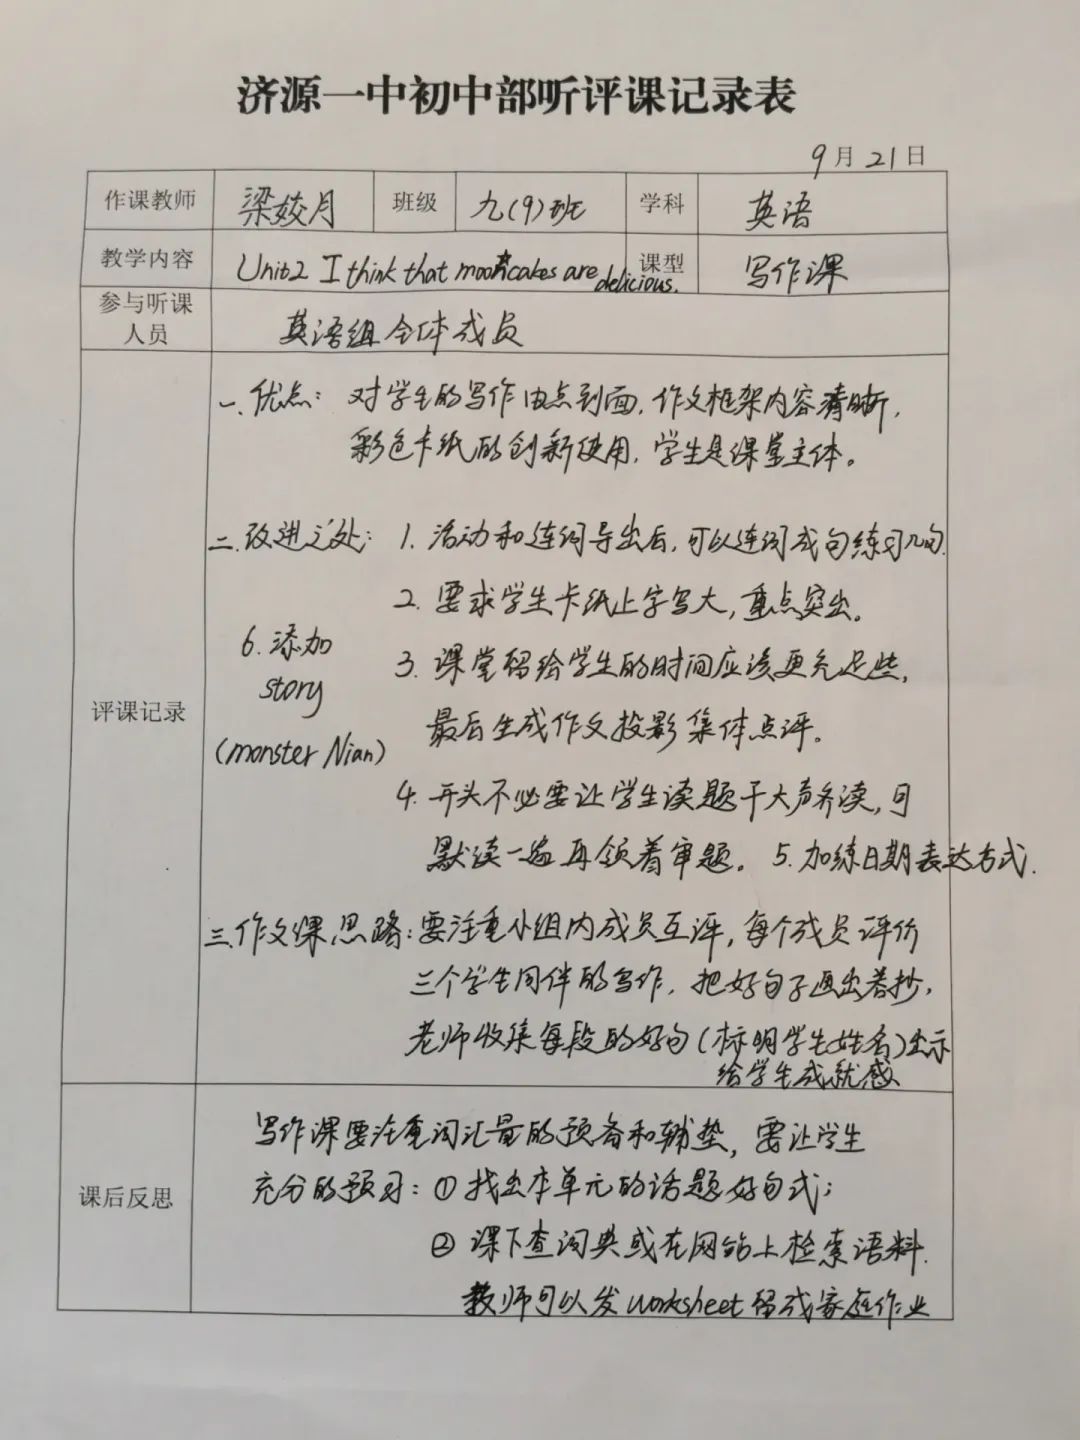 济源一中初中部听评课记录表
9月21日
作课教师 梁姣月 班级 九(9)班 学科 英语
教学内容 Unit2 I think that mooncakes are delicious. 课型 写作课
参与听课人员 英语组全体成员
评课记录
一、优点：对学生的写作由点到面，作文框架内容清晰，
彩色卡纸的创新使用，学生是课堂主体。
二、改进之处：1. 活动和连词导出后，可以连词成句练习几句.
2. 要求学生卡纸上字写大，重点突出。
3. 课堂留给学生的时间应该更充足些，
最后生成作文投影集体点评。
4. 开头不必要让学生读题干大声齐读，可
默读一遍再领着审题。 5. 加练日期表达方式.
6. 添加
story
(monster Nian)
三、作文课思路：要注重小组内成员互评，每个成员评价
三个学生同伴的写作，把好句子画出若抄，
老师收集每段的好句(标明学生姓名)出示
给学生成就感
课后反思
写作课要注重词汇量的预备和铺垫，要让学生
充分的预习：① 找出本单元的话题好句式；
② 课下查词典或在网站上检索语料.
教师可以发worksheet留成家庭作业